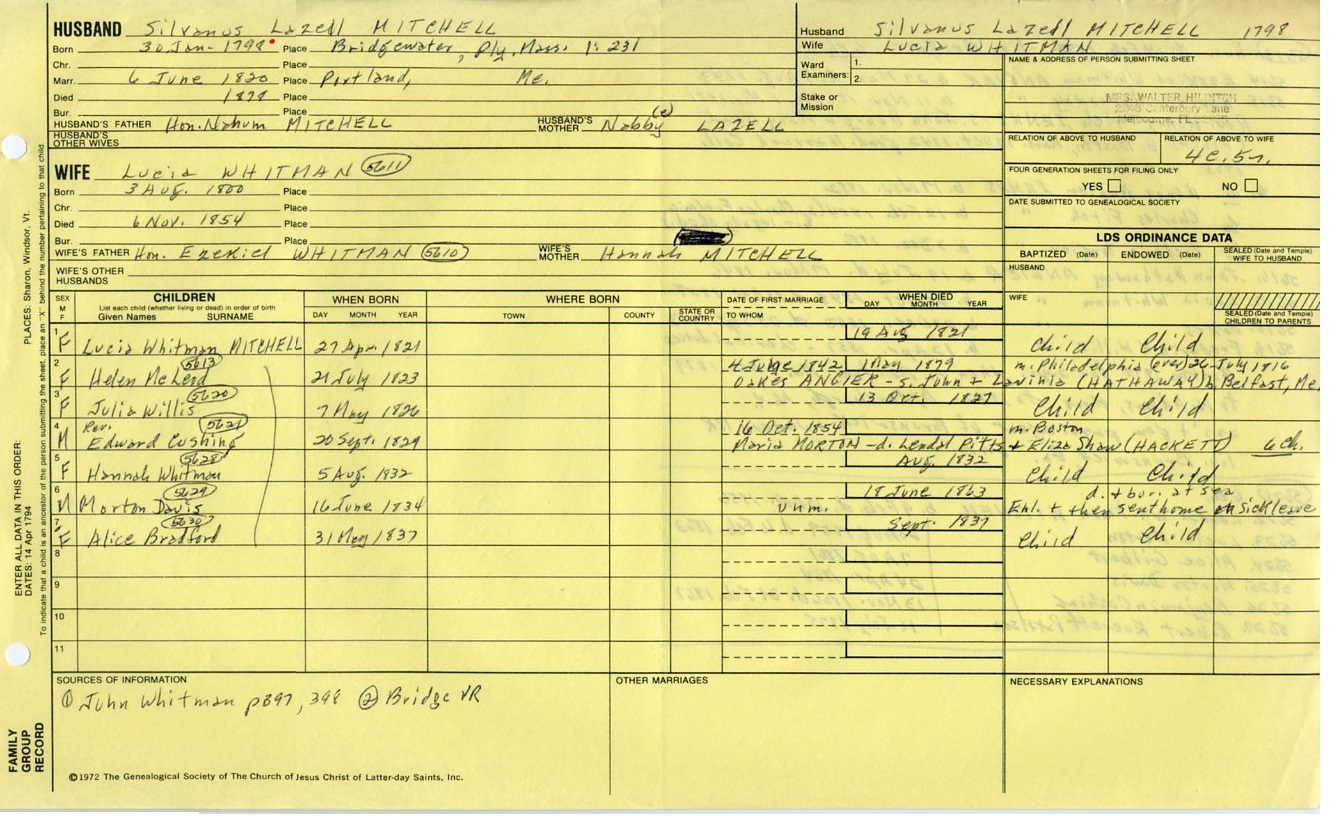 HUSBAND Silvanus Lazell MITCHELL
Born 30 Jan- 1798 Place Bridgewater, Ply, Mass. 1: 231
Chr. Place
Marr. 6 June 1820 Place Portland, Me.
Died 1878 Place
Bur. Place
HUSBAND'S FATHER Hon. Nahum MITCHELL HUSBAND'S MOTHER Nabby (e) LAZELL
HUSBAND'S OTHER WIVES
WIFE Lucia WHITMAN 5611
Born 3 Aug. 1800 Place
Chr. Place
Died 6 Nov. 1854 Place
Bur. Place
WIFE'S FATHER Hon. Ezekiel WHITMAN 5610 WIFE'S MOTHER Hannah MITCHELL
WIFE'S OTHER HUSBANDS
Husband Silvanus Lazell MITCHELL 1798
Wife Lucia WHITMAN
Ward Examiners: 1. 2.
Stake or Mission
NAME & ADDRESS OF PERSON SUBMITTING SHEET
MRS. WALTER HILDITCH
Canterbury Lane
Melbourne, FL
RELATION OF ABOVE TO HUSBAND RELATION OF ABOVE TO WIFE
4c. 5r.
FOUR GENERATION SHEETS FOR FILING ONLY
YES NO
DATE SUBMITTED TO GENEALOGICAL SOCIETY
LDS ORDINANCE DATA
BAPTIZED (Date) ENDOWED (Date) SEALED (Date and Temple) WIFE TO HUSBAND
HUSBAND
WIFE
SEALED (Date and Temple) CHILDREN TO PARENTS
SEX M F CHILDREN WHEN BORN WHERE BORN DATE OF FIRST MARRIAGE WHEN DIED
List each child (whether living or dead) in order of birth
Given Names SURNAME DAY MONTH YEAR TOWN COUNTY STATE OR COUNTRY TO WHOM DAY MONTH YEAR
1 F Lucia Whitman MITCHELL 27 Apr. 1821 19 Aug 1821 Child Child
2 F Helen McLeod 5613 21 July 1823 4 June 1842 1 May 1879 m. Philadelphia 26 July 1816
OAKES ANGIER - s. John + Lavinia (HATHAWAY) b. Belfast, Me.
3 F Julia Willis 5620 7 May 1826 13 Oct. 1827 Child Child
4 M Rev. Edward Cushing 5621 20 Sept. 1829 16 Oct. 1854 m. Boston
Maria MORTON - d. Lendal Pitts + Eliza Shaw (HACKETT) 6 ch.
5 F Hannah Whitman 5628 5 Aug. 1832 Aug. 1832 Child Child
6 M Morton Davis 5629 16 June 1834 unm. 18 June 1863 d. + bur. at sea
Enl. + then sent home on sick leave
7 F Alice Bradford 5630 31 May 1837 Sept. 1837 Child Child
8
9
10
11
SOURCES OF INFORMATION
① John Whitman p 397, 398 ② Bridge VR
OTHER MARRIAGES
NECESSARY EXPLANATIONS
©1972 The Genealogical Society of The Church of Jesus Christ of Latter-day Saints, Inc.
FAMILY GROUP RECORD
ENTER ALL DATA IN THIS ORDER:
DATES: 14 Apr 1794
PLACES: Sharon, Windsor, Vt.
To indicate that a child is an ancestor of the person submitting the sheet, place an "X" behind the number pertaining to that child.